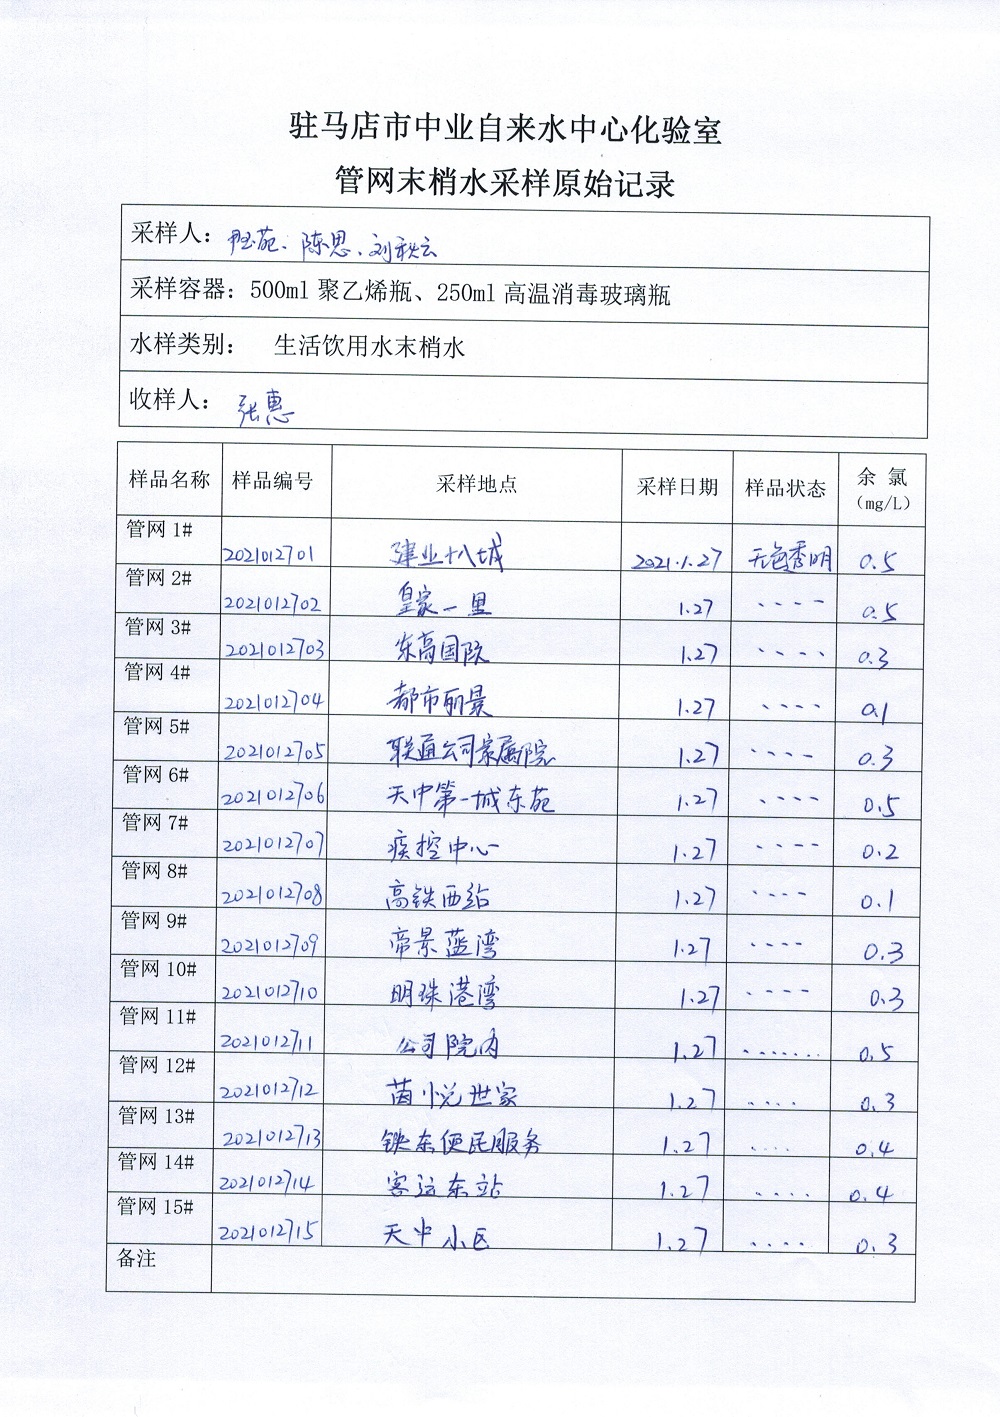 驻马店市中业自来水中心化验室
管网末梢水采样原始记录
采样人：苑、陈思、刘秋云
采样容器：500ml 聚乙烯瓶、250ml 高温消毒玻璃瓶
水样类别： 生活饮用水末梢水
收样人： 张惠
样品名称 样品编号 采样地点 采样日期 样品状态 余 氯（mg/L）
管网 1# 2021012701 建业十八城 2021.1.27 无色透明 0.5
管网 2# 2021012702 皇家一里 1.27 ---- 0.5
管网 3# 2021012703 东高国际 1.27 ---- 0.3
管网 4# 2021012704 都市丽景 1.27 ---- 0.1
管网 5# 2021012705 联通公司家属院 1.27 ---- 0.3
管网 6# 2021012706 天中第一城东苑 1.27 ---- 0.5
管网 7# 2021012707 疾控中心 1.27 ---- 0.2
管网 8# 2021012708 高铁西站 1.27 ---- 0.1
管网 9# 2021012709 帝景蓝湾 1.27 ---- 0.3
管网 10# 2021012710 明珠港湾 1.27 ---- 0.3
管网 11# 2021012711 公司院内 1.27 ....... 0.5
管网 12# 2021012712 茵悦世家 1.27 .... 0.3
管网 13# 2021012713 铁东便民服务 1.27 .... 0.4
管网 14# 2021012714 客运东站 1.27 .... 0.4
管网 15# 2021012715 天中小区 1.27 .... 0.3
备注